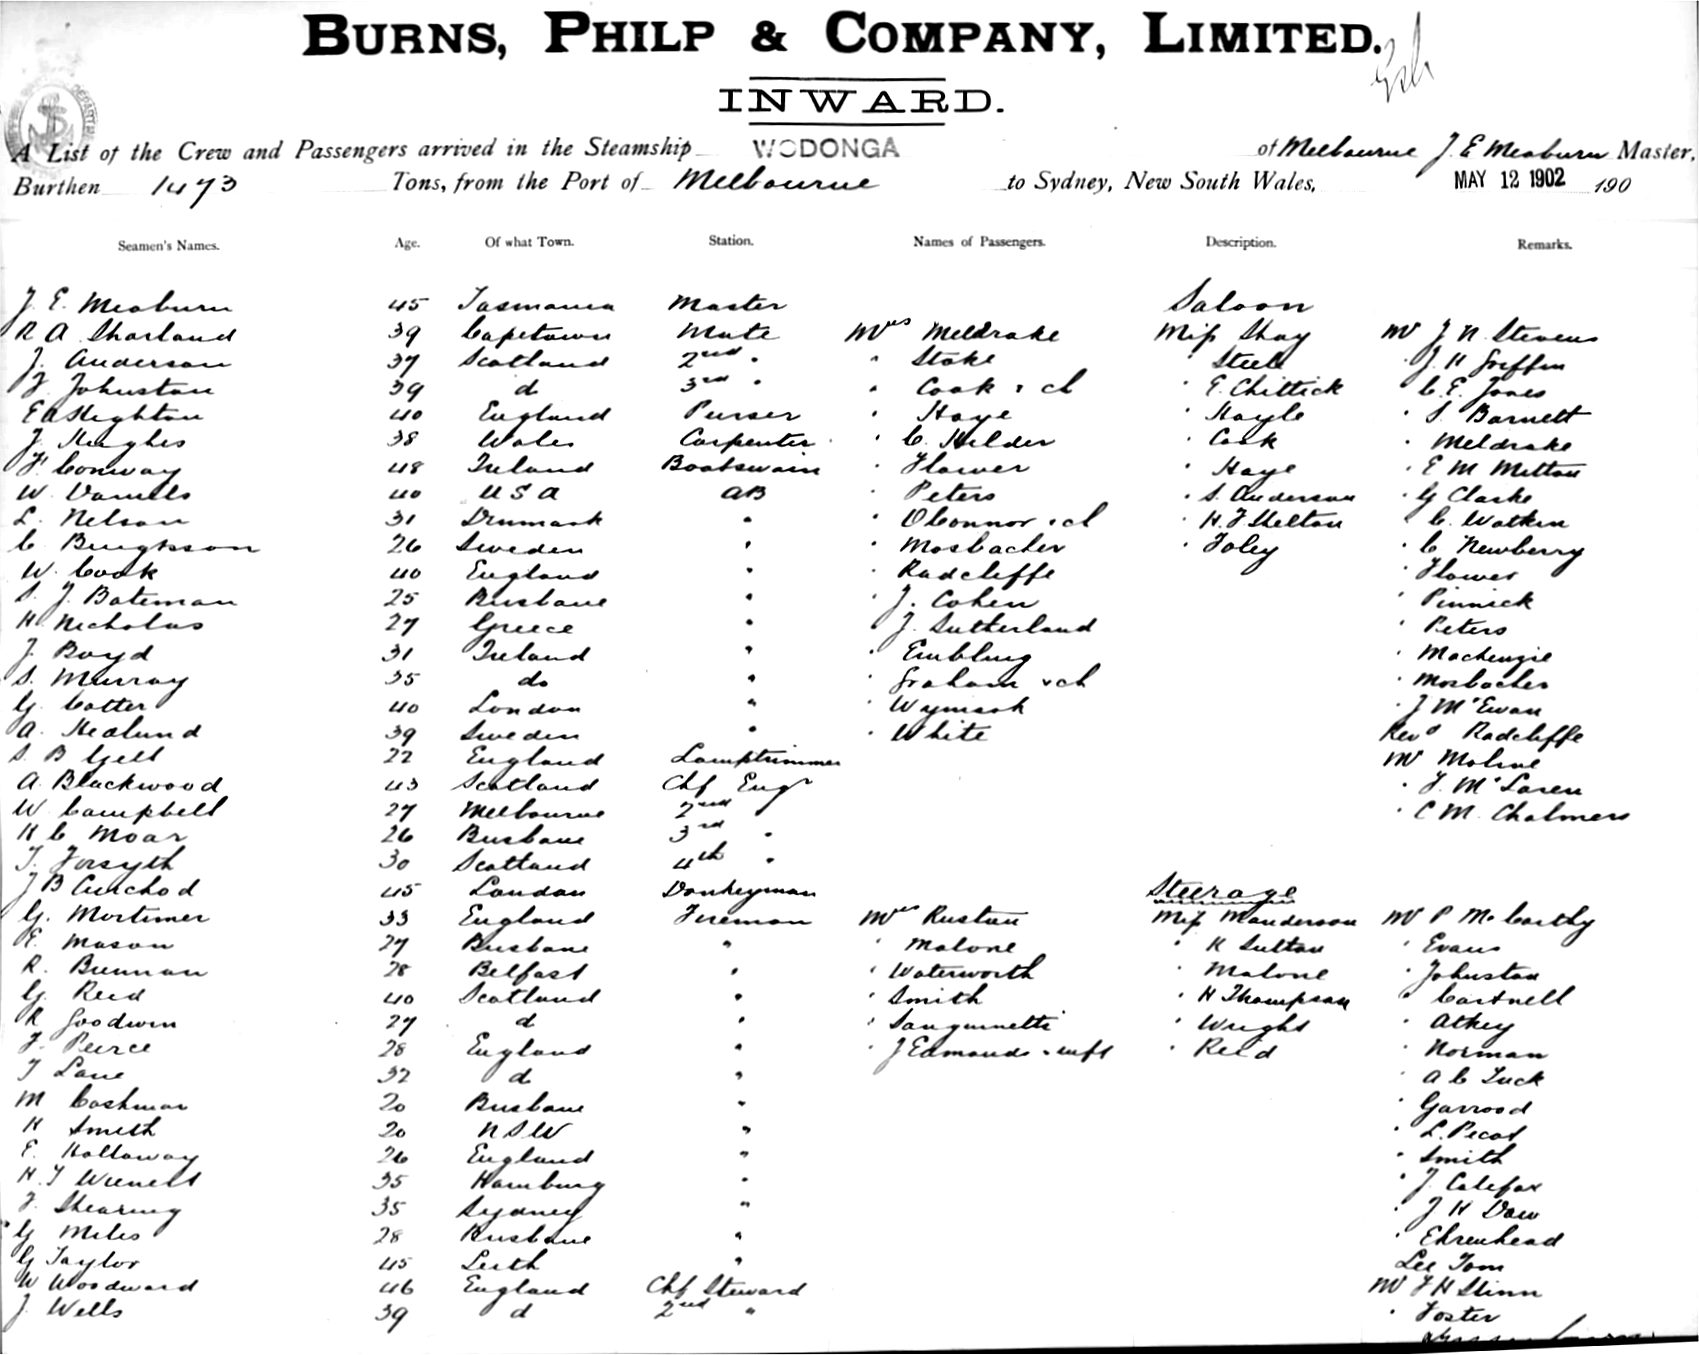 BURNS, PHILP & COMPANY, LIMITED.
INWARD.
A List of the Crew and Passengers arrived in the Steamship WODONGA of Melbourne J. E Meaburn Master,
Burthen 1473 Tons, from the Port of Melbourne to Sydney, New South Wales, MAY 12 1902 190
Seamen's Names. Age. Of what Town. Station. Names of Passengers. Description. Remarks.
J. E. Meaburn 45 Tasmania Master Saloon
R A Sharland 39 Capetown Mate Mrs Meldrake Miss Shay Mr J N. Stevens
J. Anderson 37 Scotland 2nd " " Stoke " Steele " J. H Griffin
J. Johnston 39 d 3rd " " Cook & ch " E. Chittick " C. E. Jones
E A Heighton 40 England Purser " Haye " Hayle " S Barnett
J. Hughes 38 Wales Carpenter " C. Hilder " Cook " Meldrake
F. Conway 48 Ireland Boatswain " Flower " Haye " E M Mitton
W. Daniels 40 U S A AB " Peters " S. Anderson " G Clarke
L. Nelson 31 Denmark " " O'Connor & ch " H. F Shelton " C. Watkin
C. Bengtsson 26 Sweden " " Mosbacher " Foley " C Newberry
W. Cook 40 England " " Radcliffe " Flower
S. J. Bateman 25 Brisbane " " J. Cohen " Pinnick
H. Nicholas 27 Greece " " J. Sutherland " Peters
J. Boyd 31 Ireland " " Embling " Mackenzie
S. Murray 35 do " " Graham & ch " Mosbacher
G. Cotter 40 London " " Wymark " J McEwan
A. Hedlund 39 Sweden " " White Revd Radcliffe
S. B Gell 22 England Lamptrimmer Mr Moline
A. Blackwood 43 Scotland Chf Engr " F. McLaren
W Campbell 27 Melbourne 2nd " " C M. Chalmers
H C Moar 26 Brisbane 3rd "
T. Forsyth 30 Scotland 4th "
J B Cuchod 45 London Donkeyman Steerage
G. Mortimer 33 England Fireman Mrs Rustan Miss Manderson Mr P McCarthy
E. Mason 27 Brisbane " " Malone " K Sutton " Evans
R. Brennan 28 Belfast " " Waterworth " Malone " Johnston
G. Reid 40 Scotland " " Smith " H Thompson " Cartnell
R Goodwin 27 d " " Sanguinetti " Wright " Athey
F. Peirce 28 England " " J Edmonds & wife " Reid " Norman
J Lane 32 d " " A C Tuck
M Cashman 20 Brisbane " " Garrood
H Smith 20 N S W " " L. Pecot
E. Hollaway 26 England " " Smith
H. T 35 Hamburg " " J. Calefax
F. Shearing 35 Sydney " " J H Daw
G Miles 28 Brisbane " " Ehrenhead
G Taylor 45 Leith " Lee Tom
W Woodward 46 England Chf Steward Mr F H Stinn
J. Wells 39 d 2nd " " Foster